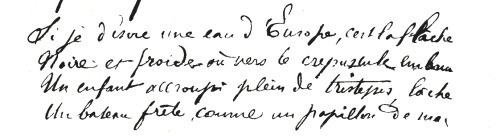 Si je désire une eau d'Europe, c'est la flache
Noire et froide où vers le crépuscule embau
Un enfant accroupi plein de tristesses, lache
Un bateau frêle comme un papillon de mai